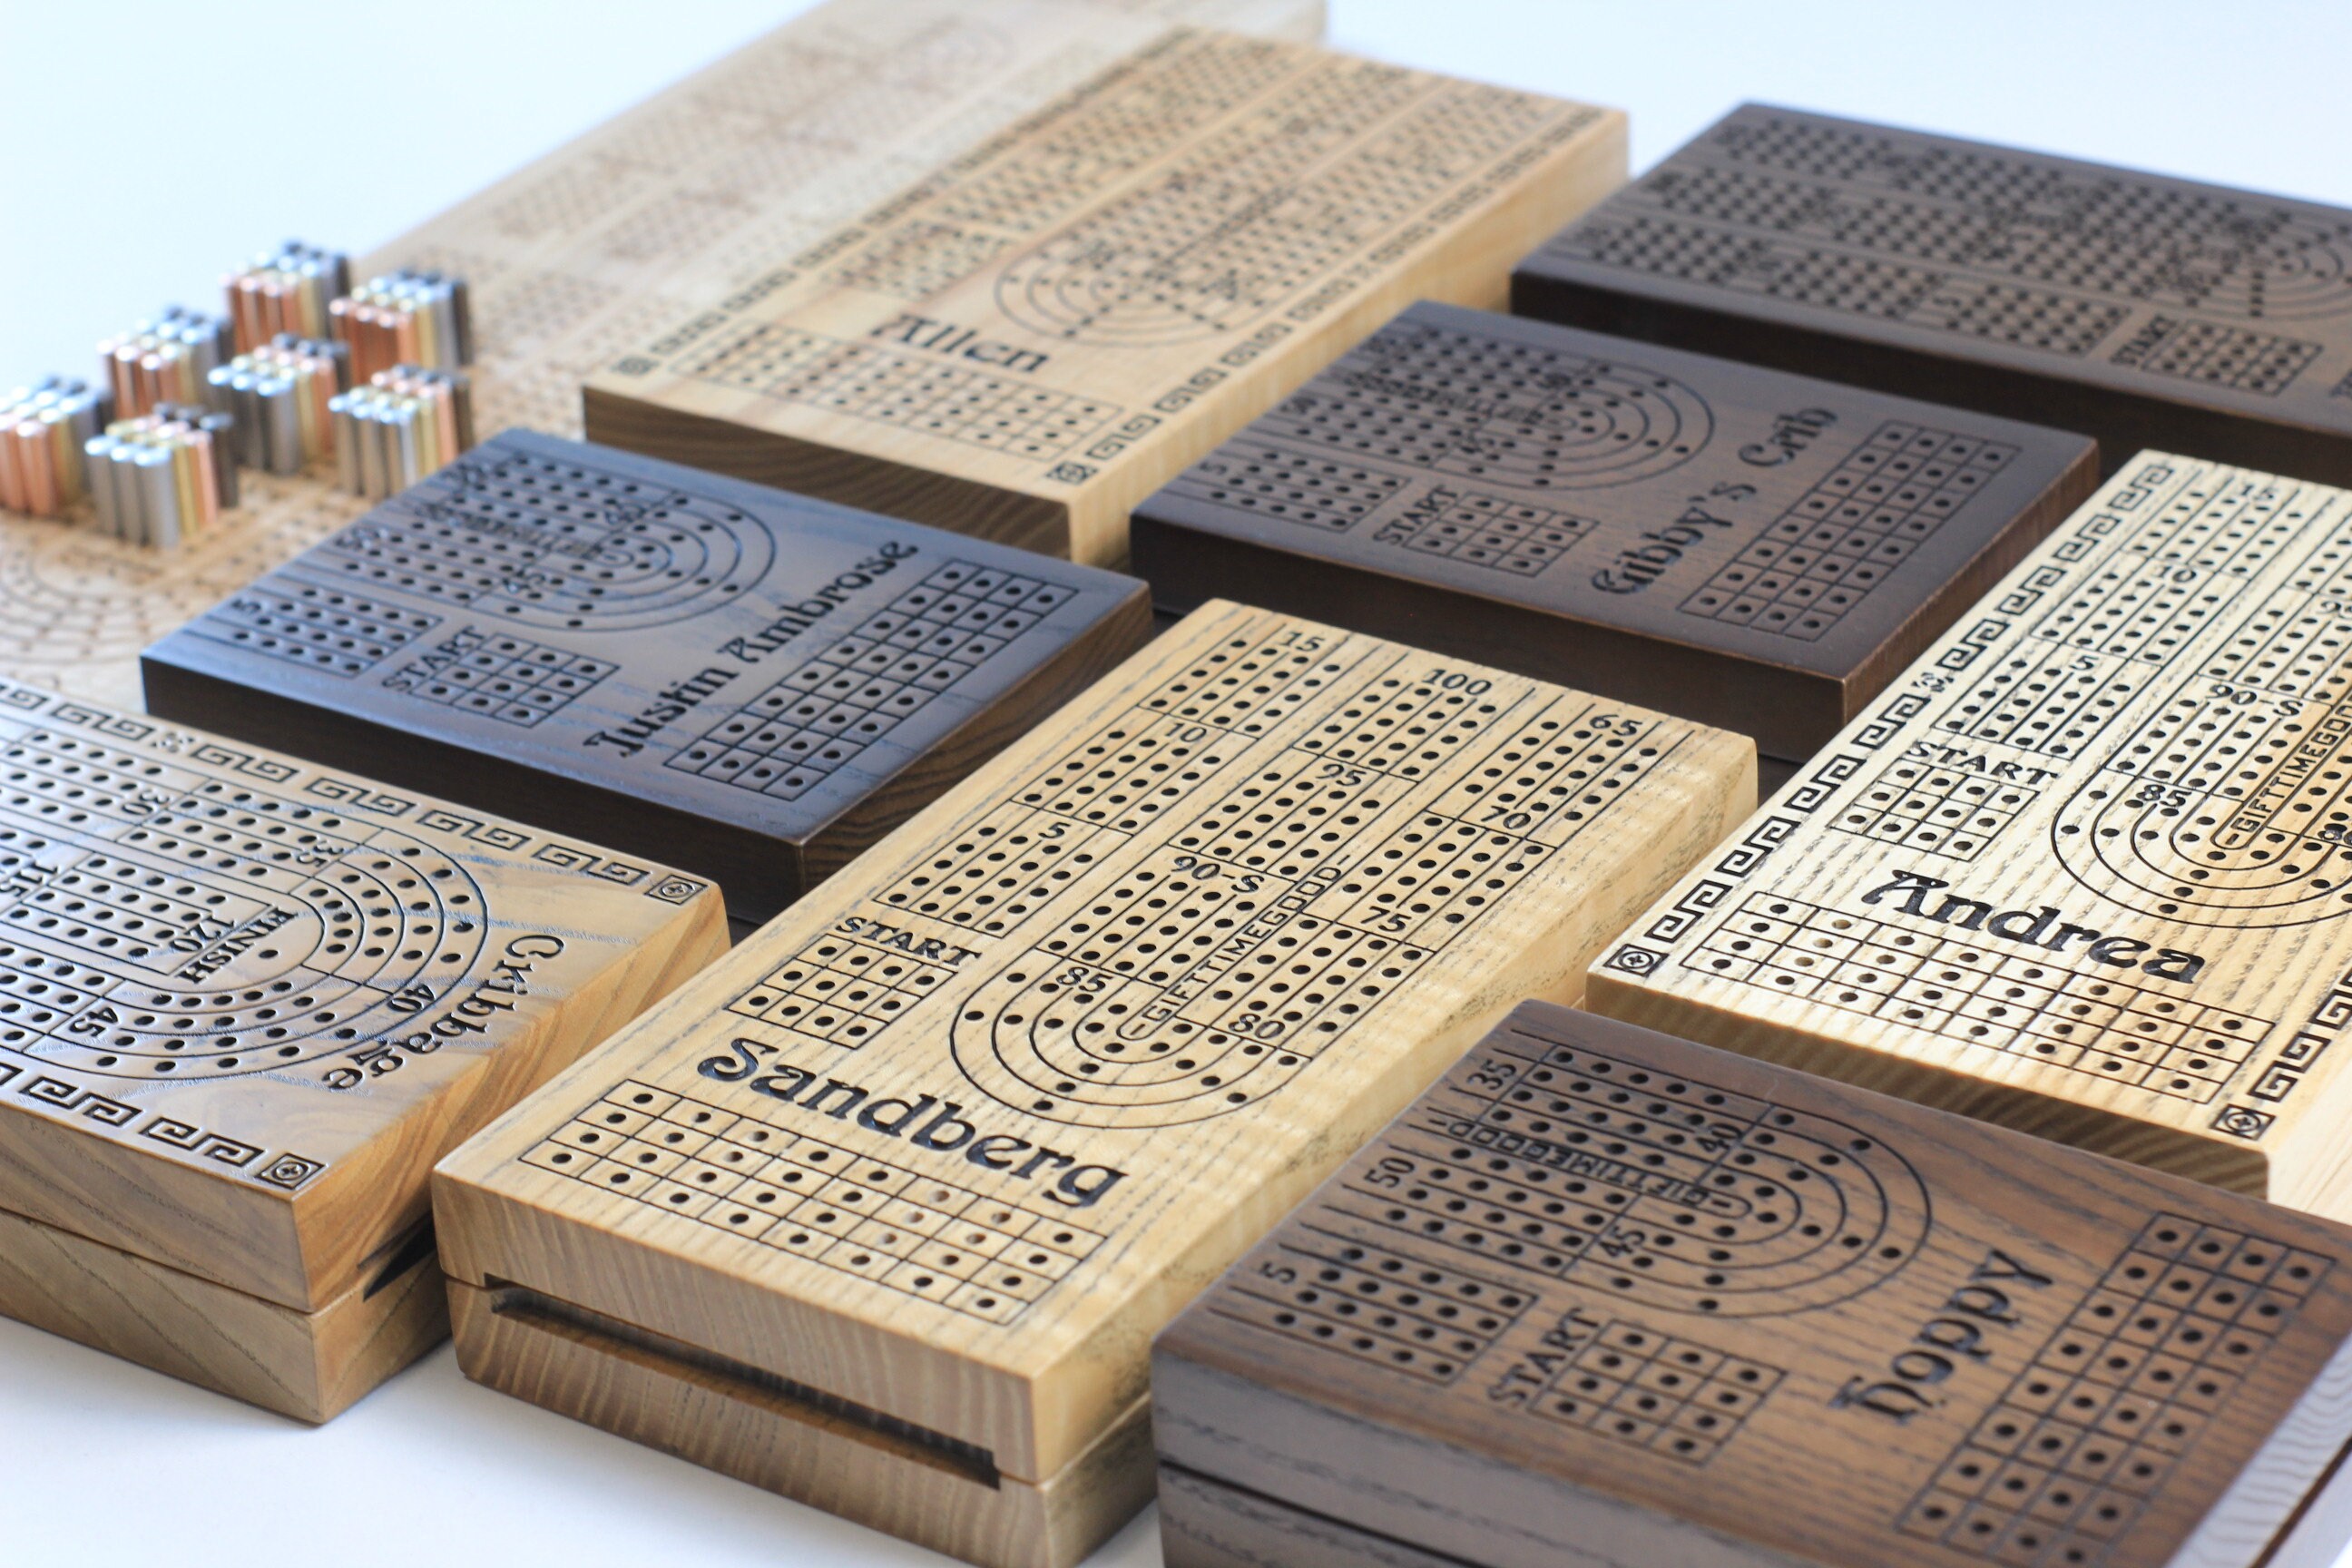 Allen
START
Gibby's Crib
5
START
45
40
5
START
Justin Ambrose
50
45
40
5
START
15
10
5
START
100
95
90-S
85
65
70
75
80
-GIFTTIMEGOOD-
Sandberg
15
10
5
START
90-S
85
-GIFTTIMEGOOD
Andrea
30
35
115
120
FINISH
40
45
Cribbage
35
40
-GIFTTIMEGOOD-
50
45
5
START
Hoppy